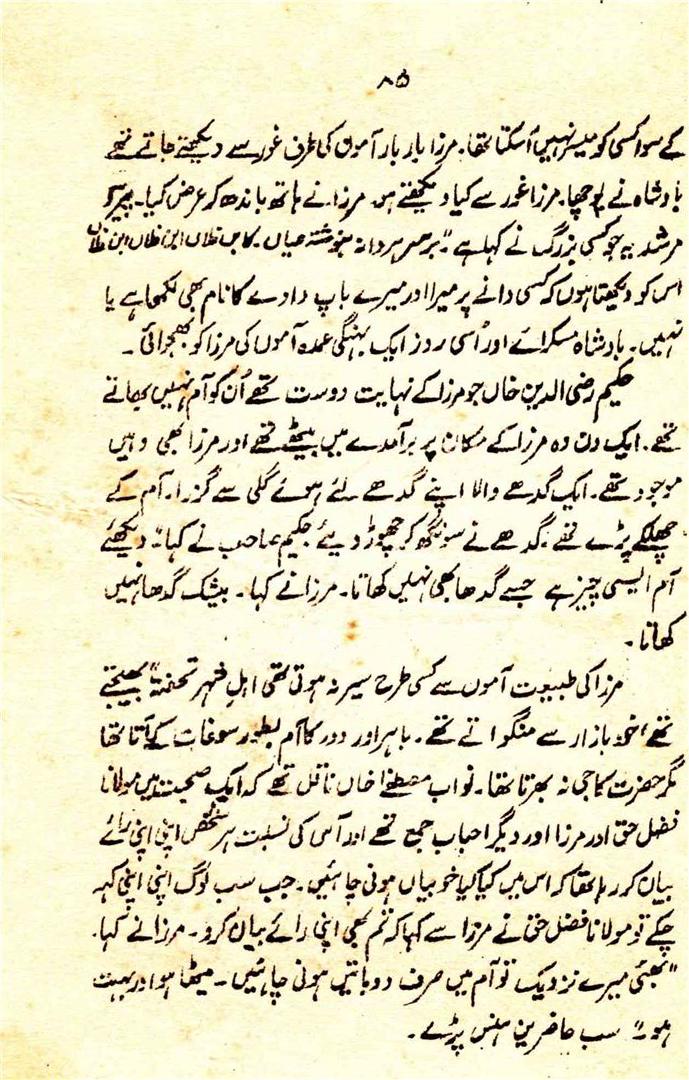 ۸۵
کے سوا کسی کو میسر نہیں آسکتا تھا۔ مرزا بار بار آموں کی طرف غور سے دیکھتے جاتے تھے
بادشاہ نے پوچھا۔ مرزا غور سے کیا دیکھتے ہو۔ مرزا نے ہاتھ باندھ کر عرض کیا۔ پیر و
مرشد یہ جو کسی بزرگ نے کہا ہے "برسر ہر دانہ بنوشتہ عیاں۔ کاین فلاں ابن فلاں ابن فلاں
اس کو دیکھتا ہوں کہ کسی دانے پر میرا اور میرے باپ دادے کا نام بھی لکھا ہے یا
نہیں۔ بادشاہ مسکرائے اور اُسی روز ایک بہنگی عمدہ آموں کی مرزا کو بھجوائی۔
حکیم رضی الدین خاں جو مرزا کے نہایت دوست تھے اُن کو آم نہیں بھاتے
تھے۔ ایک دن وہ مرزا کے مکان پر برآمدے میں بیٹھے تھے اور مرزا بھی وہیں
موجود تھے۔ ایک گدھے والا اپنے گدھے لئے ہوئے گلی سے گزرا۔ آم کے
چھلکے پڑے تھے۔ گدھے نے سونگھ کر چھوڑ دیئے۔ حکیم صاحب نے کہا۔ دیکھئے
آم ایسی چیز ہے جسے گدھا بھی نہیں کھاتا۔ مرزا نے کہا۔ بیشک گدھا نہیں
کھاتا۔
مرزا کی طبیعت آموں سے کسی طرح سیر نہ ہوتی تھی اہلِ شہر تحفتہً بھیجتے
تھے، خود بازار سے منگواتے تھے۔ باہر اور دور کا آم بطور سوغات کے آتا تھا
مگر حضرت کا جی نہ بھرتا تھا۔ نواب مصطفےٰ خاں ناقل تھے کہ ایک صحبت میں مولانا
فضل حق اور مرزا اور دیگر احباب جمع تھے اور آم کی نسبت ہر شخص اپنی اپنی رائے
بیان کر رہا تھا کہ اس میں کیا کیا خوبیاں ہونی چاہئیں۔ جب سب لوگ اپنی اپنی کہہ
چکے تو مولانا فضل حق نے مرزا سے کہا کہ تم بھی اپنی رائے بیان کرو۔ مرزا نے کہا۔
"بھئی میرے نزدیک تو آم میں صرف دو باتیں ہونی چاہئیں۔ میٹھا ہو اور بہت
ہو۔" سب حاضرین ہنس پڑے۔